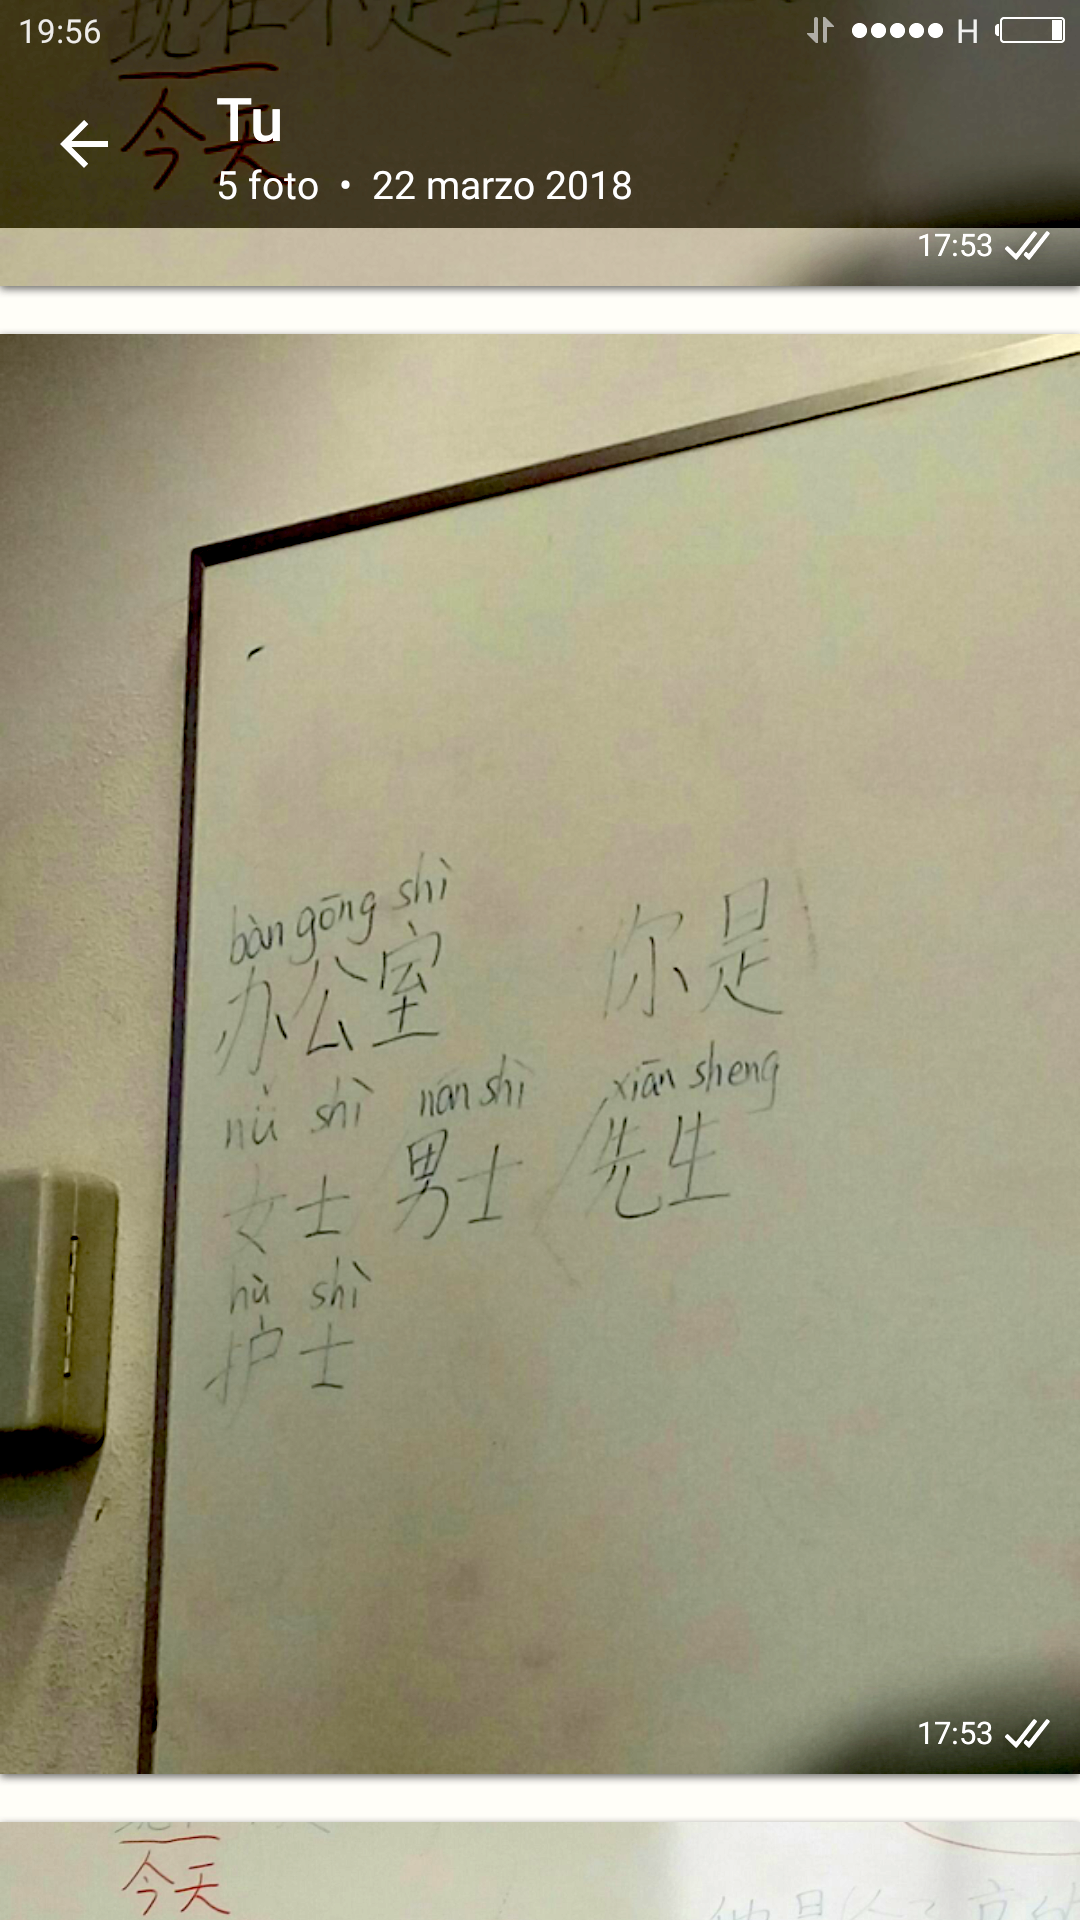 19:56 H
现在不是星期
今天
Tu
5 foto • 22 marzo 2018
17:53
bàn gōng shì
办公室 你是
nǚ shì nán shì xiān sheng
女士 男士 先生
hù shì
护士
17:53
今天